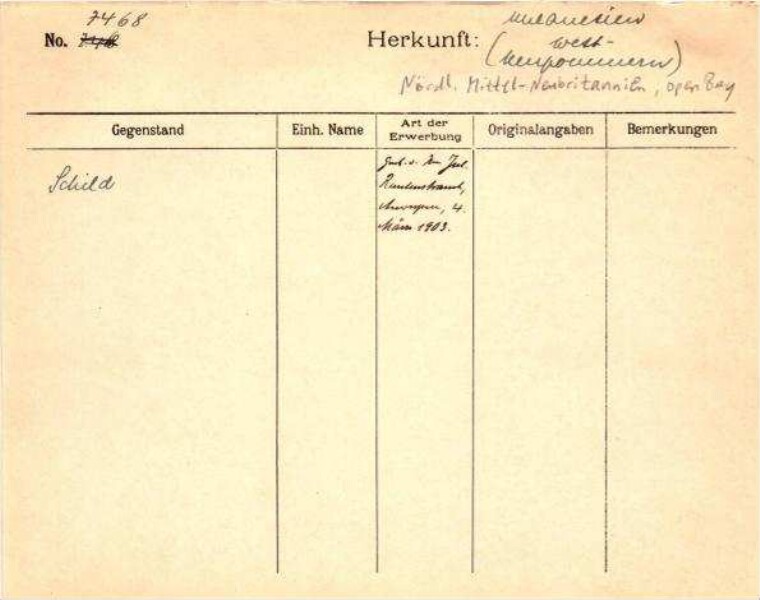 7468
No. 748 Herkunft: Melanesien
(West-
Neupommern)
Nördl. Mittel-Neubritannien, Open Bay
Gegenstand Einh. Name Art der Erwerbung Originalangaben Bemerkungen
Schild
Jul.
Antwerpen, 4.
März 1903.